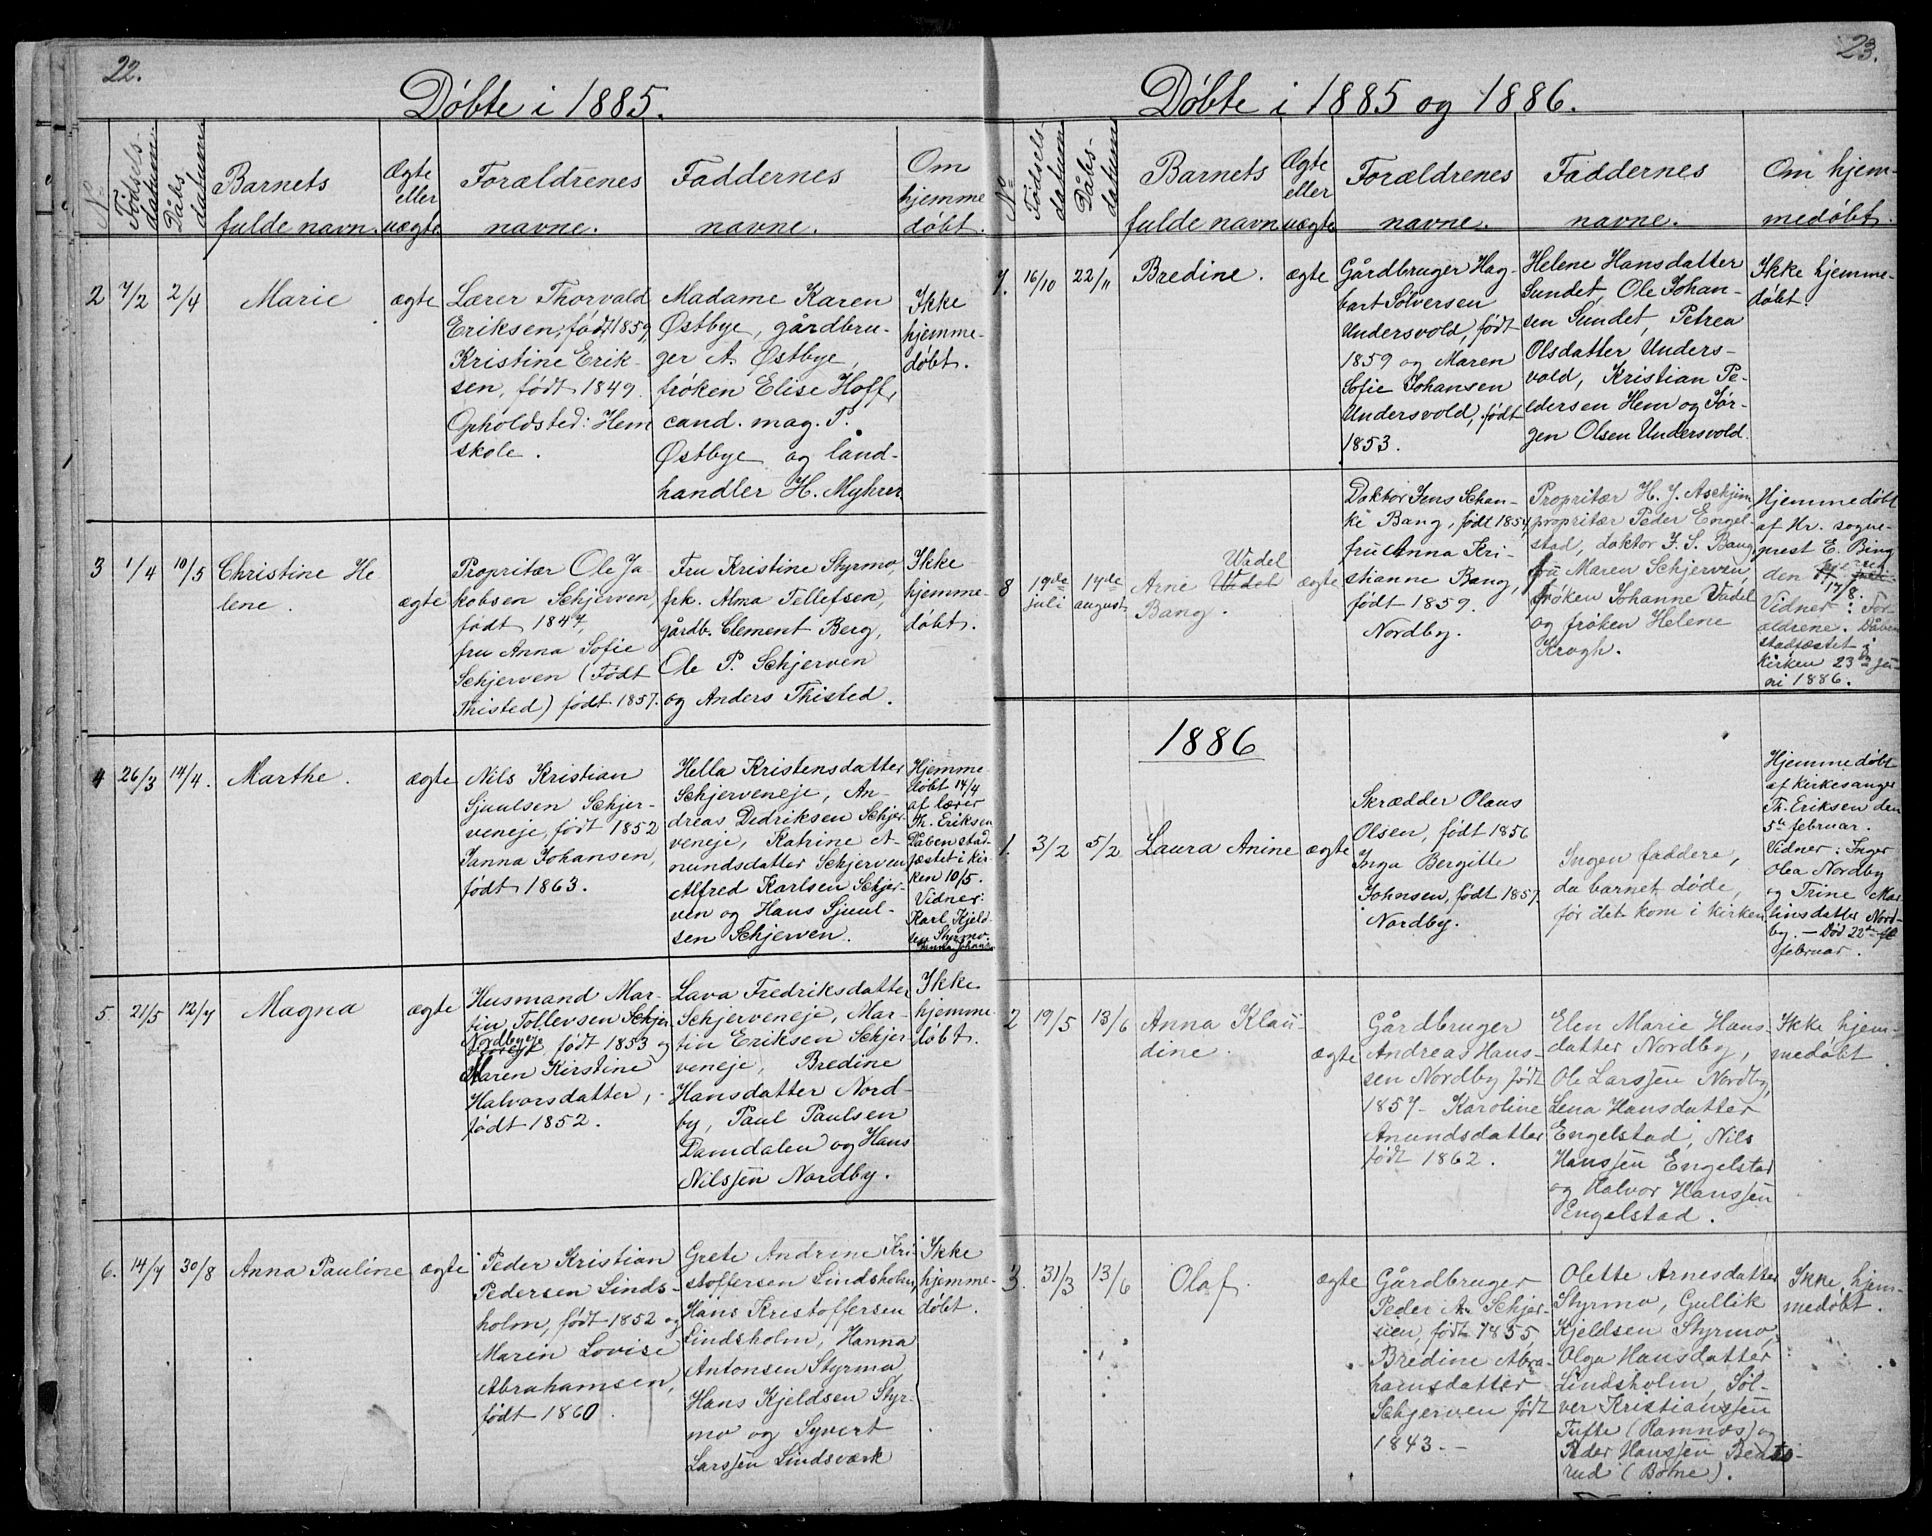 22.
Døbte i 1885.
No
Fødsels-
datum.
Dåbs
datum
Barnets
fulde navn.
Ægte
eller
uægte
Forældrenes
navne.
Faddernes
navne.
Om
hjemme
døbt.
2
7/2
2/4
Marie
ægte
Lærer Thorvald
Eriksen, født 1859,
Kristine Erik-
sen, født 1849.
Opholdsted: Hem
skole.
Madame Karen
Østbye, gårdbru-
ger A. Østbye,
frøken Elise Hoff,
cand. mag. P.
Østbye og land-
handler H. Myhrer
Ikke
hjemme-
døbt.
3
1/4
10/5
Christine He
lene.
ægte
Propritær Ole Ja-
kobsen Schjerven,
født 1847,
fru Anna Sofie
Schjerven (Født
Thisted) født 1857.
Fru Kristine Styrmo,
frk. Alma Tellefsen,
gårdb. Clement Berg,
Ole P. Schjerven
og Anders Thisted.
Ikke
hjemme-
døbt.
4
26/3
14/4.
Marthe.
ægte
Nils Kristian
Sjuulsen Schjer-
veneje, født 1852
Janna Johansen,
født 1863.
Hella Kristensdatter
Schjerveneje, An-
dreas Didriksen Schjer
veneje, Katrine A-
nundsdatter Schjerven
Alfred Karlsen Schjer-
ven og Hans Sjuul-
sen Schjerven.
Hjemme-
døbt 14/4
af lærer
Th. Eriksen
Dåben stad-
fæstet i kir-
ken 10/5.
Vidner:
Karl Kjeld-
sen Styrmo.
Janna Johansen
5.
21/5
12/7
Magna
ægte
Husmand Mar-
tin Tollevsen Schjer
Nordbyeje
veneje, født 1853 og
Maren Kirstine
Halvorsdatter,
født 1852.
Lava Fredriksdatter
Schjerveneje, Mar-
tin Eriksen Schjer-
veneje, Bredine
Hansdatter Nord-
by, Paul Paulsen
Damdalen og Hans
Nilssen Nordby.
Ikke
hjemme-
døbt.
6.
14/7
30/8
Anna Pauline
ægte
Peder Kristian
Pedersen Linds-
holm, født 1852 og
Maren Lovise
Abrahamsen,
født 1860.
Grete Andrine Kri-
stoffersen Lindsholm,
Hans Kristoffersen
Lindsholm, Hanna
Antonsen Styrmo
Hans Kjeldsen Styr-
mo og Syvert
Larssen Lindsværk
Ikke
hjemme-
døbt.
23.
Døbte i 1885 og 1886.
No
Fødsels-
datum
Dåbs-
datum
Barnets
fulde navn
Ægte
eller
uægte
Forældrenes
navne.
Faddernes
navne.
Om hjem-
medøbt.
7.
16/10
22/11
Bredine.
ægte
Gårdbruger Hag-
bart Sölversen
Undersvold, født
1859 og Maren
Sofie Johansen
Undersvold, født
1853.
Helene Hansdatter
Sundet, Ole Johan-
sen Sundet, Petrea
Olsdatter Unders-
vold, Kristian Pe-
dersen Hem og Jör-
gen Olsen Undersvold.
Ikke hjemme-
døbt.
8
19de
juli
17de
august
Wadel
Arne Vadel
Bang.
ægte
Doktor Jens Schan-
ke Bang, født 1854,
fru Anna Kri-
stianne Bang,
født 1859.
Nordby.
Propritær H. J. Aschjem,
propritær Peder Engel-
stad, doktor J. S. Bang,
fru Maren Schjerven,
frøken Johanne Vadel
og frøken Helene
Krogh.
Hjemmedøbt
af Hr. sogne-
prest E. Bing
den
17/8.
Vidner: For-
ældrene. Dåben
stadfæstet i
kirken 23de ja-
1886.
1886
1.
3/2
5/2
Laura Anine
ægte
Skrædder Olaus
Olsen, født 1856
Inga Bergitte
Johnsen, født 1857.
Nordby.
Ingen faddere,
da barnet døde,
før det kom i kirken
Hjemmedøbt
af kirkesanger
Th. Eriksen den
5te februar.
Vidner: Inger
Olea Nordby
og Trine Mar
tinsdatter Nord-
by. – Død 22de fe
februar.
2
19/5
13/6
Anna Klau-
dine.
ægte
Gårdbruger
Andreas Hans-
sen Nordby født
1857 – Karoline
Anundsdatter
født 1862.
Elen Marie Hans-
datter Nordby,
Ole Larssen Nordby,
Lena Hansdatter
Engelstad, Nils
Hanssen Engelstad
og Halvor Hanssen
Engelstad.
Ikke hjem-
medøbt
3.
31/3
13/6
Olaf.
ægte
Gårdbruger
Peder A. Schjer-
ven, født 1855
Bredine Abra-
hamsdatter
Schjerven født
1843. –
Olette Arnesdatter
Styrmo, Gullik
Kjeldsen Styrmo,
Olga Hansdatter
Lindsholm, Söl-
ver Kristianssen
Tufte (Ramnæs) og
Peder Hanssen
rud (Botne).
Ikke hjem-
medøbt.